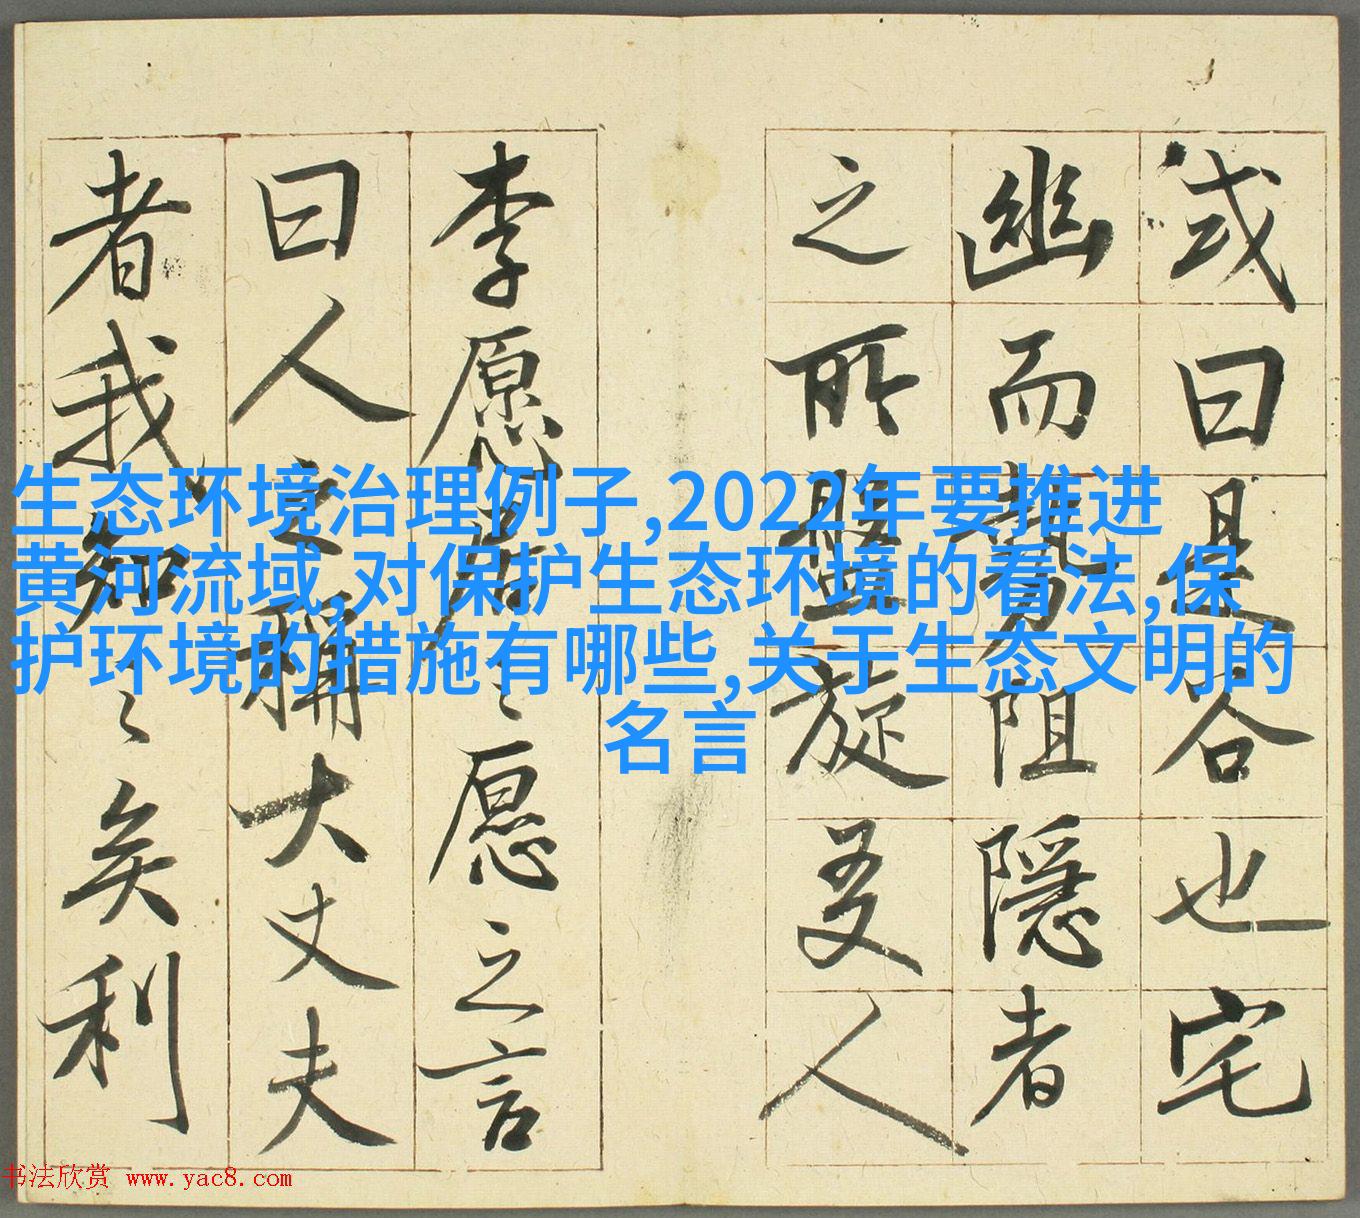 或曰是谷也宅
幽而勢阻隱者
之所盤旋友人
李愿居〻愿之言
曰人之稱大丈夫
者我知〻矣利
生态环境治理例子,2022年要推进
黄河流域,对保护生态环境的看法,保
护环境的措施有哪些,关于生态文明的
名言
书法欣赏 www.yac8.com